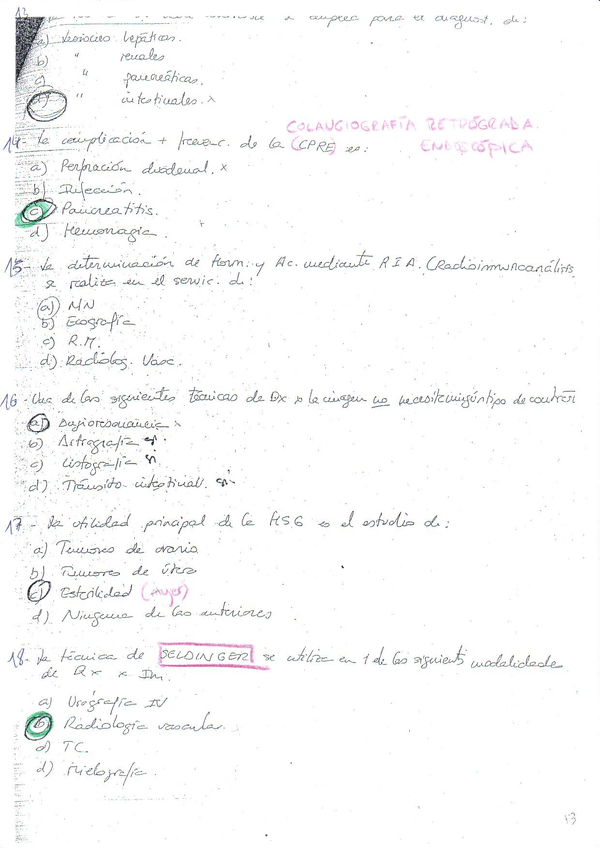 13
se emplea para el diagnost. de:
a) Lesiones hepáticas.
b) " renales
c) " pancreáticas.
d) " intestinales. x
COLANGIOGRAFÍA RETRÓGRADA
ENDOSCÓPICA
14- La complicación + frecuenc. de la (CPRE) es:
a) Perforación duodenal. x
b) Infección.
c) Pancreatitis.
d) Hemorragia.
15- La determinación de Horm. y Ac. mediante R I A. (Radioinmunoanálisis
se realiza en el servic. de:
a) MN
b) Ecografía
c) R.M.
d) Radiolog. Vasc.
16- Una de las siguientes técnicas de Dx x la imagen no necesita ningún tipo de contraste
a) Angioresonancia x
b) Artrografía si
c) Cistografía si
d) Tránsito intestinal. si
17- La utilidad principal de la HSG es el estudio de:
a) Tumores de ovario
b) Tumores de útero
c) Esterilidad (mujer)
d) Ninguna de las anteriores
18- La técnica de SELDINGER se utiliza en 1 de las siguients modalidades
de Dx x Im.
a) Urografía IV
b) Radiología vascular.
c) TC.
d) Mielografía.
13